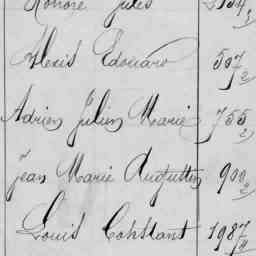 Honoré Jules
Alexis Edouard 507/2
Adrien Julien Marie 755/2
Jean Marie Augustin 900/2
Louis Constant 1987/4